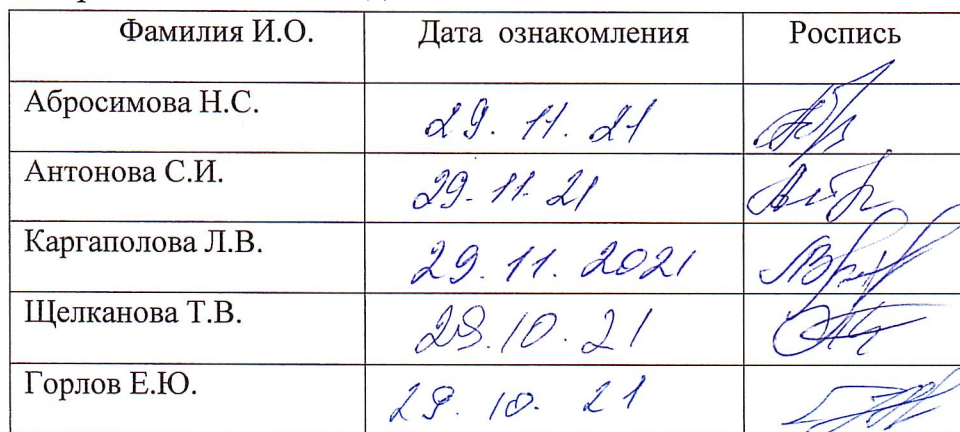 Фамилия И.О. Дата ознакомления Роспись
Абросимова Н.С. 29. 11. 21
Антонова С.И. 29. 11. 21
Каргаполова Л.В. 29. 11. 2021
Щелканова Т.В. 29.10.21
Горлов Е.Ю. 29. 10. 21